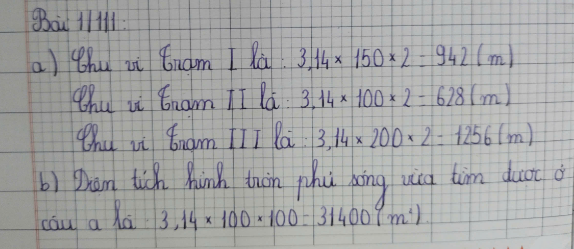 Bài 11111:
a) Chu vi trạm I là: 3,14 × 150 × 2 = 942 (m)
Chu vi trạm II là: 3,14 × 100 × 2 = 628 (m)
Chu vi trạm III là: 3,14 × 200 × 2 = 1256 (m)
b) Diện tích hình tròn phủ sóng vừa tìm được ở
câu a là: 3,14 × 100 × 100 = 31400 (m²)